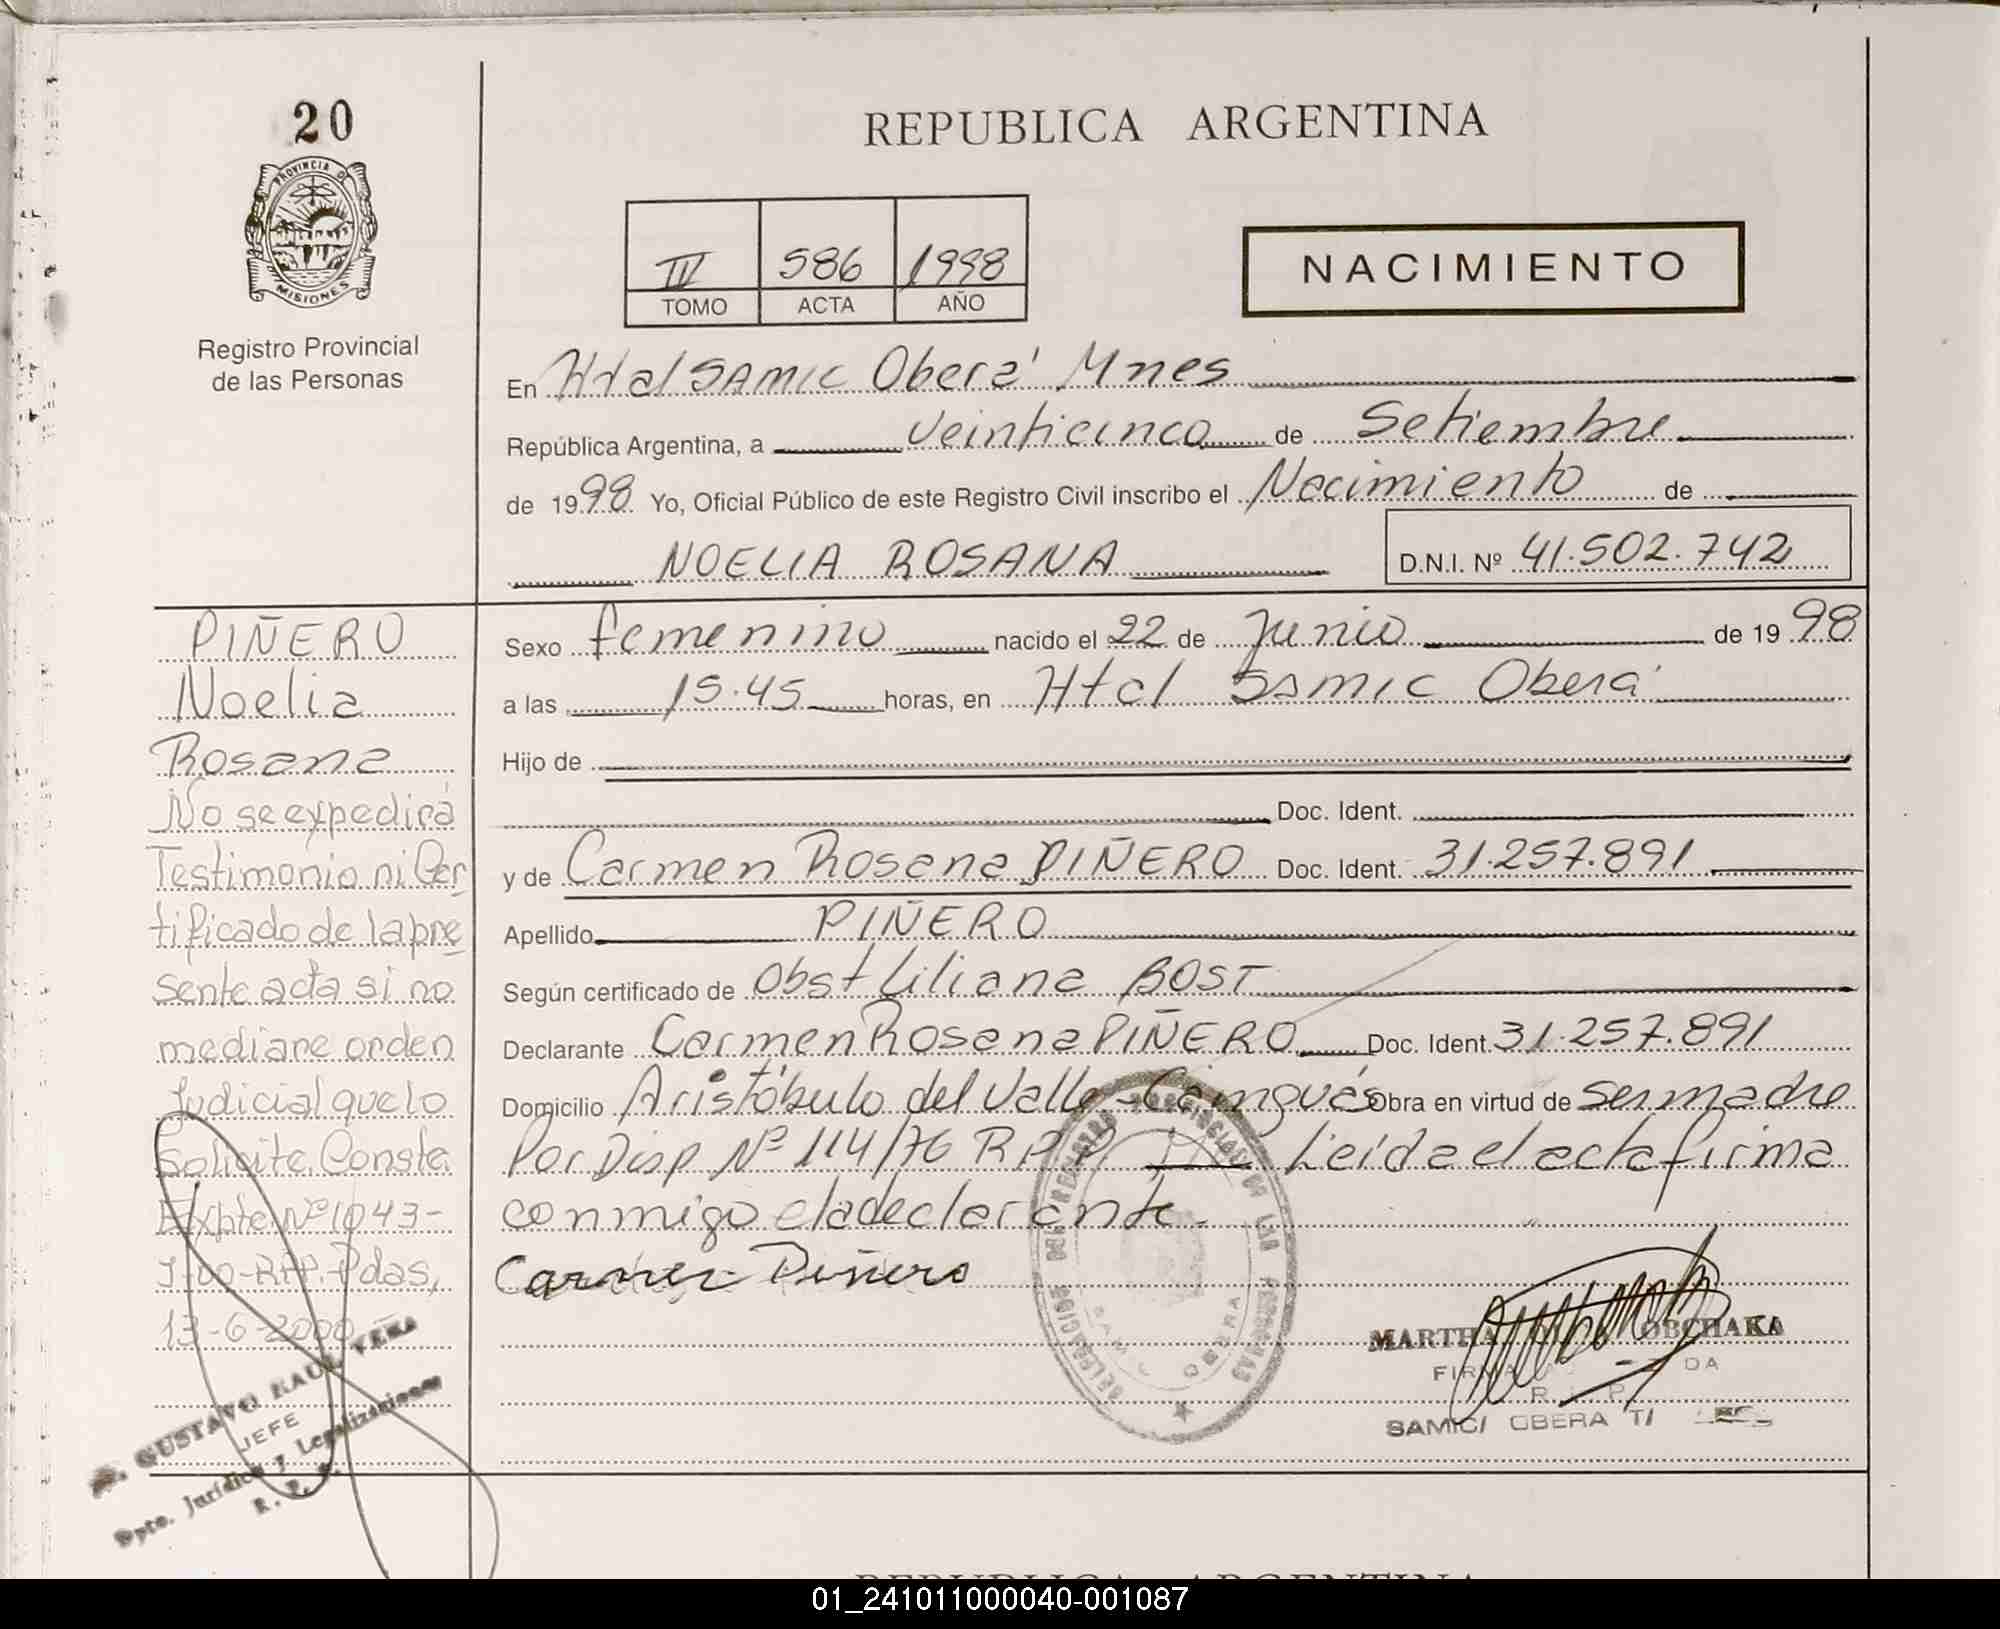 20
PROVINCIA DE
MISIONES
Registro Provincial
de las Personas
REPUBLICA ARGENTINA
IV 586 1998
TOMO ACTA AÑO
NACIMIENTO
En Htal SAMIC Oberá Mnes
República Argentina, a veinticinco de Setiembre
de 1998 Yo, Oficial Público de este Registro Civil inscribo el Nacimiento de
NOELIA ROSANA D.N.I. Nº 41.502.742
PIÑERO
Noelia
Rosana
No se expedirá
Testimonio ni Cer
tificado de la pre
sente acta si no
mediare orden
Judicial que lo
Solicite. Conste
Expte. Nº 1043-
J-00-RPP. Pdas,
13-6-2000
GUSTAVO RAUL VERA
JEFE
Dpto. Jurídico y Legalizaciones
R. P. P.
Sexo femenino nacido el 22 de Junio de 1998
a las 15.45 horas, en Htal Samic Oberá
Hijo de
Doc. Ident.
y de Carmen Rosana PIÑERO Doc. Ident. 31.257.891
Apellido PIÑERO
Según certificado de Obst Liliana BOST
Declarante Carmen Rosana PIÑERO Doc. Ident. 31.257.891
Domicilio Aristóbulo del Valle - Cainguás Obra en virtud de ser madre
Por Disp Nº 114/76 R P P Leída el acta firma
conmigo el a declarante.
Carmen Piñero
DELEGACION DEL REGISTRO PROVINCIAL DE LAS PERSONAS
MARTHA OBCHAKA
R. P.
SAMIC/ OBERA
REPUBLICA ARGENTINA
01_241011000040-001087